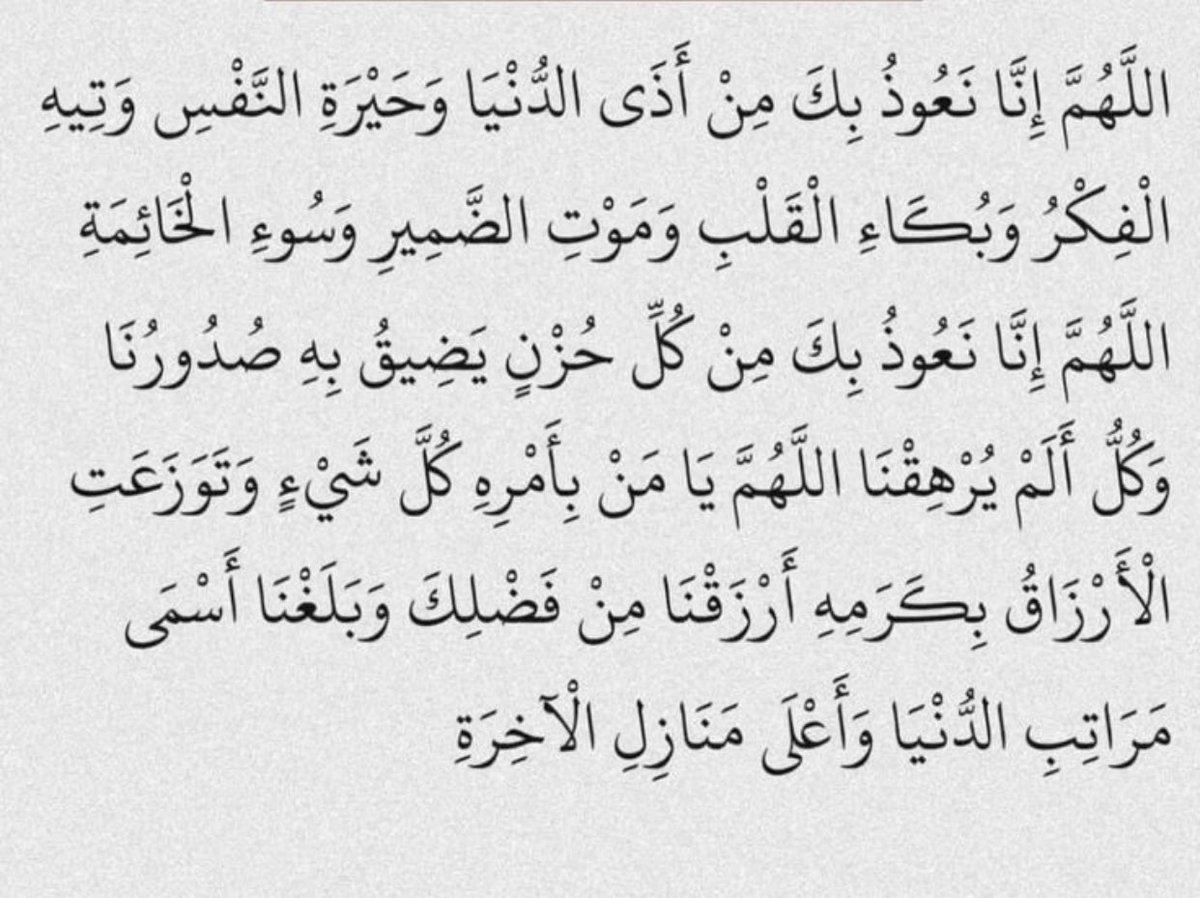 اللَّهُمَّ إِنَّا نَعُوذُ بِكَ مِنْ أَذَى الدُّنْيَا وَحَيْرَةِ النَّفْسِ وَتِيهِ
الْفِكْرُ وَبُكَاءِ الْقَلْبِ وَمَوْتِ الضَّمِيرِ وَسُوءِ الْخَائِمَةِ
اللَّهُمَّ إِنَّا نَعُوذُ بِكَ مِنْ كُلِّ حُزْنٍ يَضِيقُ بِهِ صُدُورُنَا
وَكُلُّ أَلَمْ يُرْهِقْنَا اللَّهُمَّ يَا مَنْ بِأَمْرِهِ كُلَّ شَيْءٍ وَتَوَزَعَتِ
الْأَرْزَاقُ بِكَرَمِهِ أَرْزَقْنَا مِنْ فَضْلِكَ وَبَلَغْنَا أَسْمَى
مَرَاتِبِ الدُّنْيَا وَأَعْلَى مَنَازِلِ الْآخِرَةِ